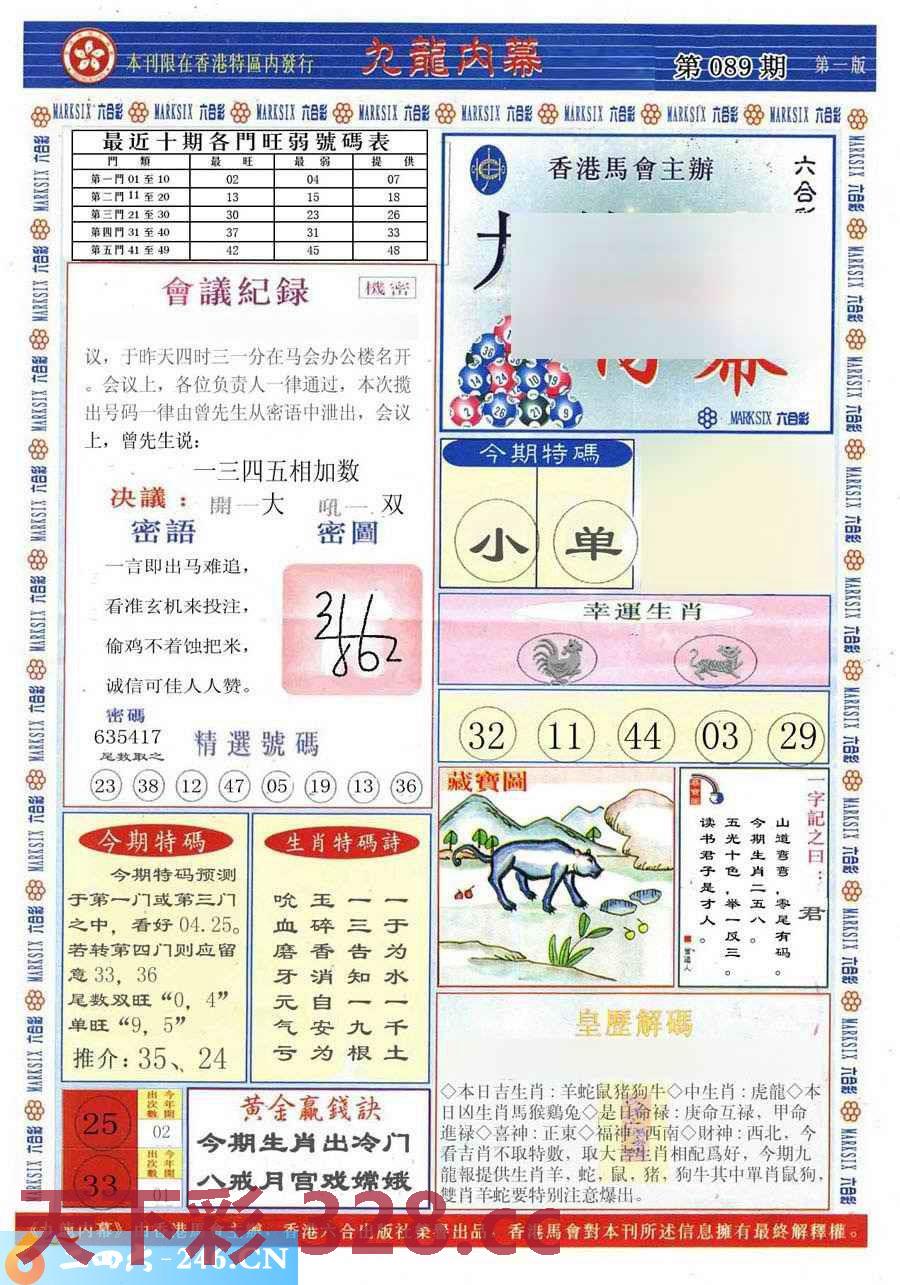 本刊限在香港特區内發行
九龍内幕
第 089 期
第一版
最近十期各門旺弱號碼表
門 類 最 旺 最 弱 提 供
第一門 01 至 10 02 04 07
第二門 11 至 20 13 15 18
第三門 21 至 30 30 23 26
第四門 31 至 40 37 31 33
第五門 41 至 49 42 45 48
會議紀録
機密
议，于昨天四时三一分在马会办公楼名开
。会议上，各位负责人一律通过，本次揽
出号码一律由曾先生从密语中泄出，会议
上，曾先生说：
一三四五相加数
决議：開一大 吼一 双
密語 密圖
一言即出马难追，
看准玄机来投注，
偷鸡不着蚀把米，
诚信可佳人人赞。
密碼
635417
尾数取之
精選號碼
23 38 12 47 05 19 13 36
香港馬會主辦
六合彩
MARKSIX 六合彩
今期特碼
小 单
幸運生肖
32 11 44 03 29
藏寶圖
一字記之曰：君
山道弯弯，零尾有码。
今期生肖二五八。
五光十色，举一反三。
读书君子是才人。
今期特碼
今期特码预测
于第一门或第三门
之中，看好 04.25。
若转第四门则应留
意 33，36
尾数双旺“0，4”
单旺“9，5”
推介：35、24
生肖特碼詩
吮 玉 一 一
血 碎 三 于
磨 香 告 为
牙 消 知 水
元 自 一 一
气 安 九 千
亏 为 根 土
25
今年開出次數
02
33
今年開出次數
01
黃金贏錢訣
今期生肖出冷门
八戒月宫戏嫦娥
皇歷解碼
◇本日吉生肖：羊蛇鼠猪狗牛◇中生肖：虎龍◇本
日凶生肖馬猴鷄兔◇是日命禄：庚命互禄，甲命
進禄◇喜神：正東◇福神：西南◇財神：西北，今
看吉肖不取特數，取大吉生肖相配爲好，今期九
龍報提供生肖羊，蛇，鼠，猪，狗牛其中單肖鼠狗，
雙肖羊蛇要特别注意爆出。
《九龍内幕》由香港馬會主辦，香港六合出版社榮譽出品，香港馬會對本刊所述信息擁有最終解釋權。
天下彩 328.cc
246.CN